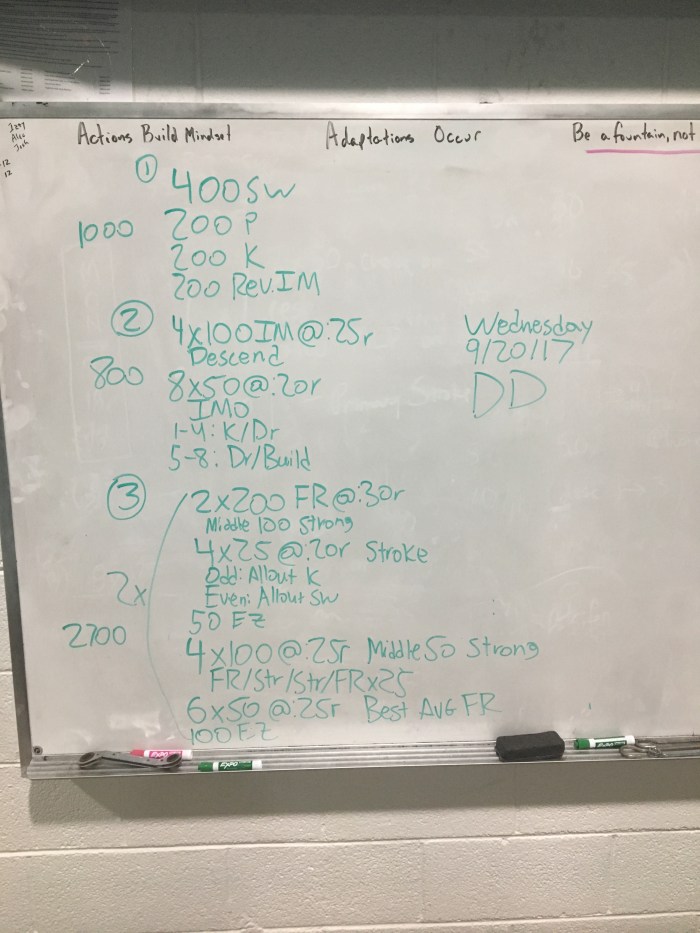 Izzy
Josh
12
12
Actions Build Mindset
Adaptations Occur
Be a fountain, not
①
400 SW
1000
200 P
200 K
200 Rev. IM
②
4x100 IM @:25r
Descend
800
8x50 @:20r
IMO
1-4: K/Dr
5-8: Dr/Build
Wednesday
9/20/17
DD
③
2x200 FR @:30r
Middle 100 Strong
4x25 @:20r Stroke
Odd: Allout K
Even: Allout SW
2x
50 EZ
2700
4x100 @:25r Middle 50 Strong
FR/Str/Str/FRx25
6x50 @:25r Best AVG FR
100 EZ
EXPO
EXPO
EXPO